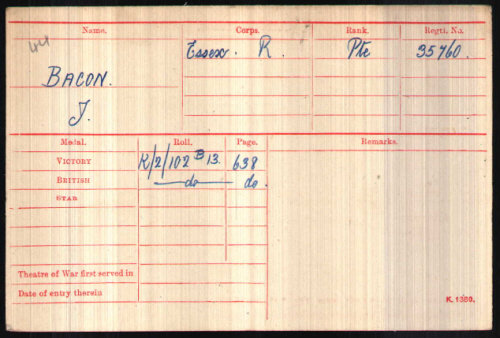 Name. Corps. Rank. Regtl. No.
Essex. R. Pte 35760.
BACON.
J.
Medal. Roll. Page. Remarks.
VICTORY K/2/102 B 13. 638
BRITISH do do.
STAR
Theatre of War first served in
Date of entry therein
K. 1380.